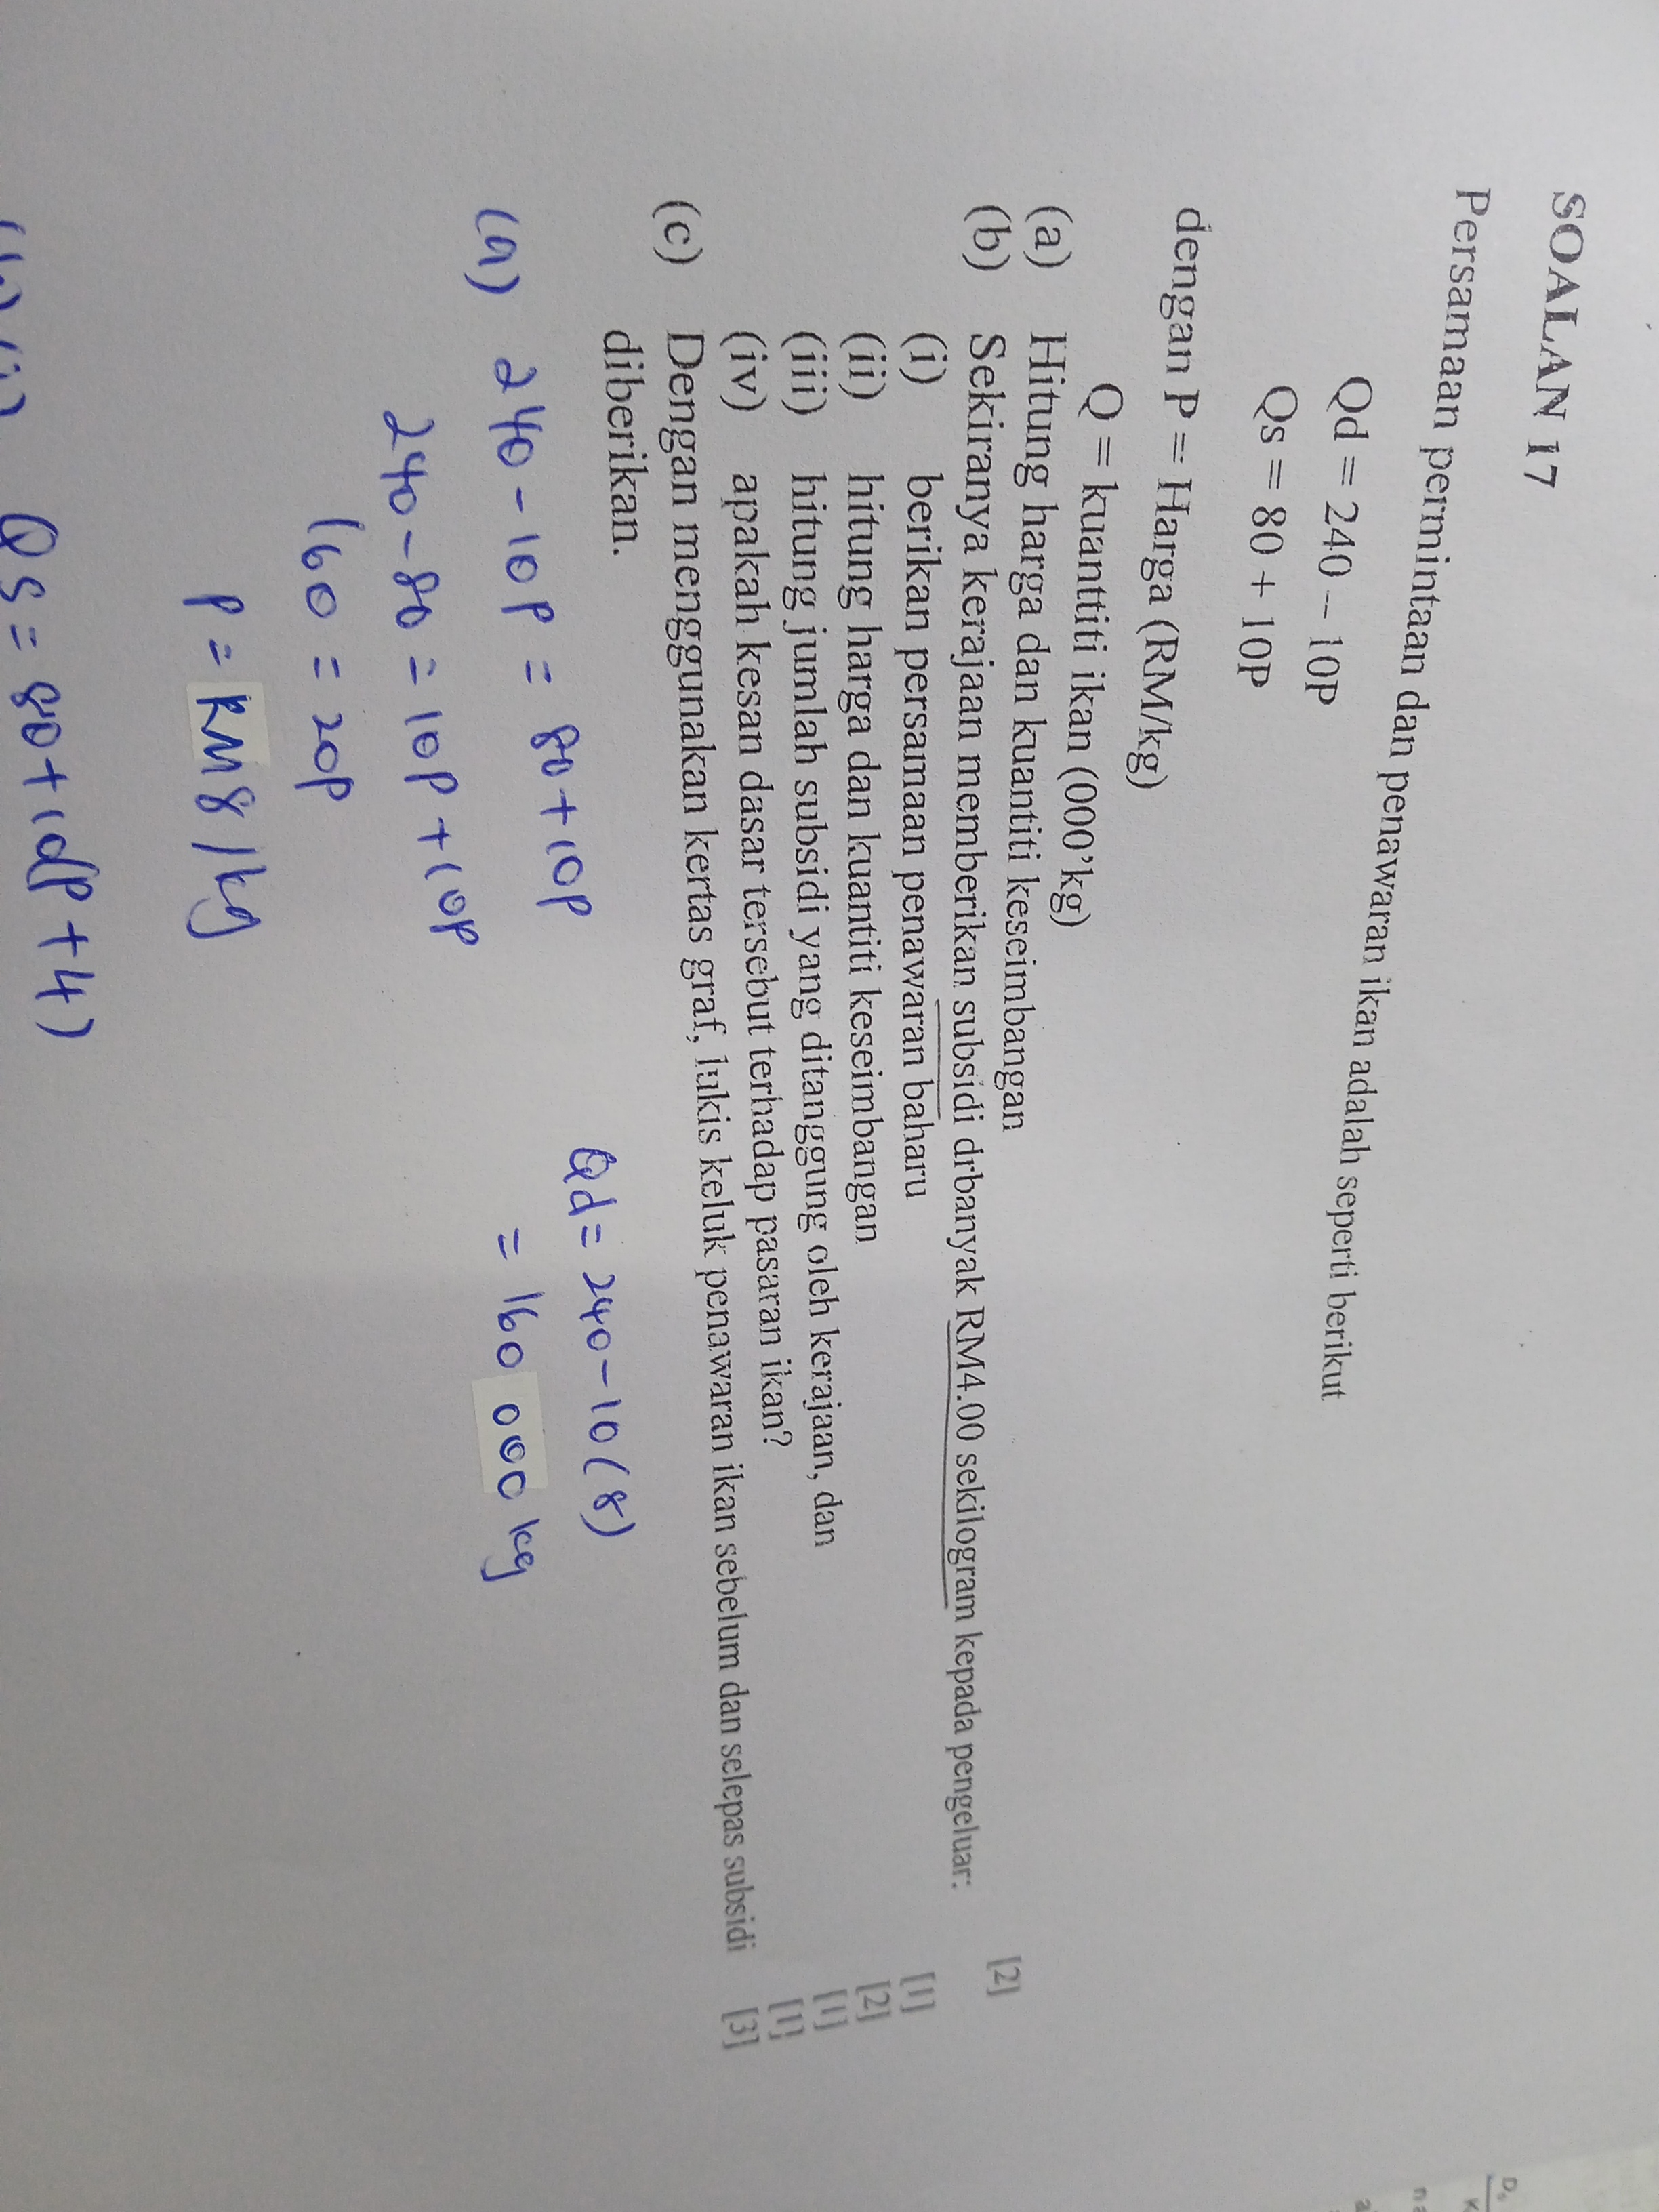 SOALAN 17
Persamaan permintaan dan penawaran ikan adalah seperti berikut
Qd = 240 – 10P
Qs = 80 + 10P
dengan P = Harga (RM/kg)
Q = kuanttiti ikan (000’kg)
(a) Hitung harga dan kuantiti keseimbangan [2]
(b) Sekiranya kerajaan memberikan subsidi drbanyak RM4.00 sekilogram kepada pengeluar:
(i) berikan persamaan penawaran baharu [1]
(ii) hitung harga dan kuantiti keseimbangan [2]
(iii) hitung jumlah subsidi yang ditanggung oleh kerajaan, dan [1]
(iv) apakah kesan dasar tersebut terhadap pasaran ikan? [1]
(c) Dengan menggunakan kertas graf, lukis keluk penawaran ikan sebelum dan selepas subsidi [3]
diberikan.
(a) 240 - 10P = 80 + 10P
240 - 80 = 10P + 10P
160 = 20P
P = RM8/kg
Qd = 240 - 10(8)
= 160 000 kg
Qs = 80 + 10(P + 4)